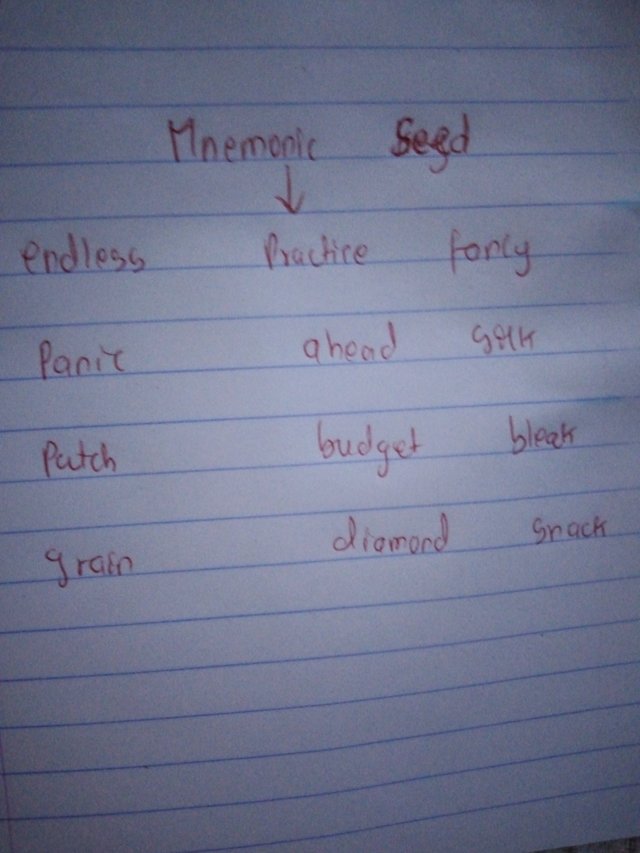 Mnemonic Seed
endless Practice fancy
Panic ahead
Patch budget bleak
grain diamond snack